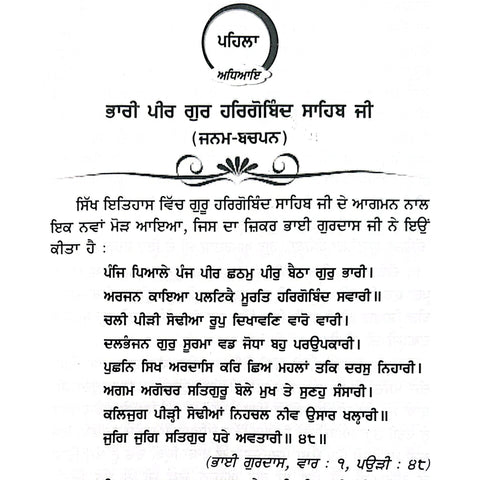 ਪਹਿਲਾ
ਅਧਿਆਇ
ਭਾਰੀ ਪੀਰ ਗੁਰ ਹਰਿਗੋਬਿੰਦ ਸਾਹਿਬ ਜੀ
(ਜਨਮ-ਬਚਪਨ)
ਸਿੱਖ ਇਤਿਹਾਸ ਵਿੱਚ ਗੁਰੂ ਹਰਿਗੋਬਿੰਦ ਸਾਹਿਬ ਜੀ ਦੇ ਆਗਮਨ ਨਾਲ
ਇਕ ਨਵਾਂ ਮੋੜ ਆਇਆ, ਜਿਸ ਦਾ ਜ਼ਿਕਰ ਭਾਈ ਗੁਰਦਾਸ ਜੀ ਨੇ ਇਉਂ
ਕੀਤਾ ਹੈ :
ਪੰਜਿ ਪਿਆਲੇ ਪੰਜ ਪੀਰ ਛਠਮੁ ਪੀਰੁ ਬੈਠਾ ਗੁਰੁ ਭਾਰੀ।
ਅਰਜਨ ਕਾਇਆ ਪਲਟਿਕੈ ਮੂਰਤਿ ਹਰਿਗੋਬਿੰਦ ਸਵਾਰੀ॥
ਚਲੀ ਪੀੜੀ ਸੋਢੀਆ ਰੂਪੁ ਦਿਖਾਵਣਿ ਵਾਰੋ ਵਾਰੀ।
ਦਲਭੰਜਨ ਗੁਰੁ ਸੂਰਮਾ ਵਡ ਜੋਧਾ ਬਹੁ ਪਰਉਪਕਾਰੀ।
ਪੁਛਨਿ ਸਿਖ ਅਰਦਾਸਿ ਕਰਿ ਛਿਅ ਮਹਲਾਂ ਤਕਿ ਦਰਸੁ ਨਿਹਾਰੀ।
ਅਗਮ ਅਗੋਚਰ ਸਤਿਗੁਰੂ ਬੋਲੇ ਮੁਖ ਤੇ ਸੁਣਹੁ ਸੰਸਾਰੀ।
ਕਲਿਜੁਗ ਪੀੜ੍ਹੀ ਸੋਢੀਆਂ ਨਿਹਚਲ ਨੀਵ ਉਸਾਰ ਖਲ੍ਹਾਰੀ।
ਜੁਗਿ ਜੁਗਿ ਸਤਿਗੁਰ ਧਰੇ ਅਵਤਾਰੀ॥ ੪੮॥
(ਭਾਈ ਗੁਰਦਾਸ, ਵਾਰ : ੧, ਪਉੜੀ : ੪੮)